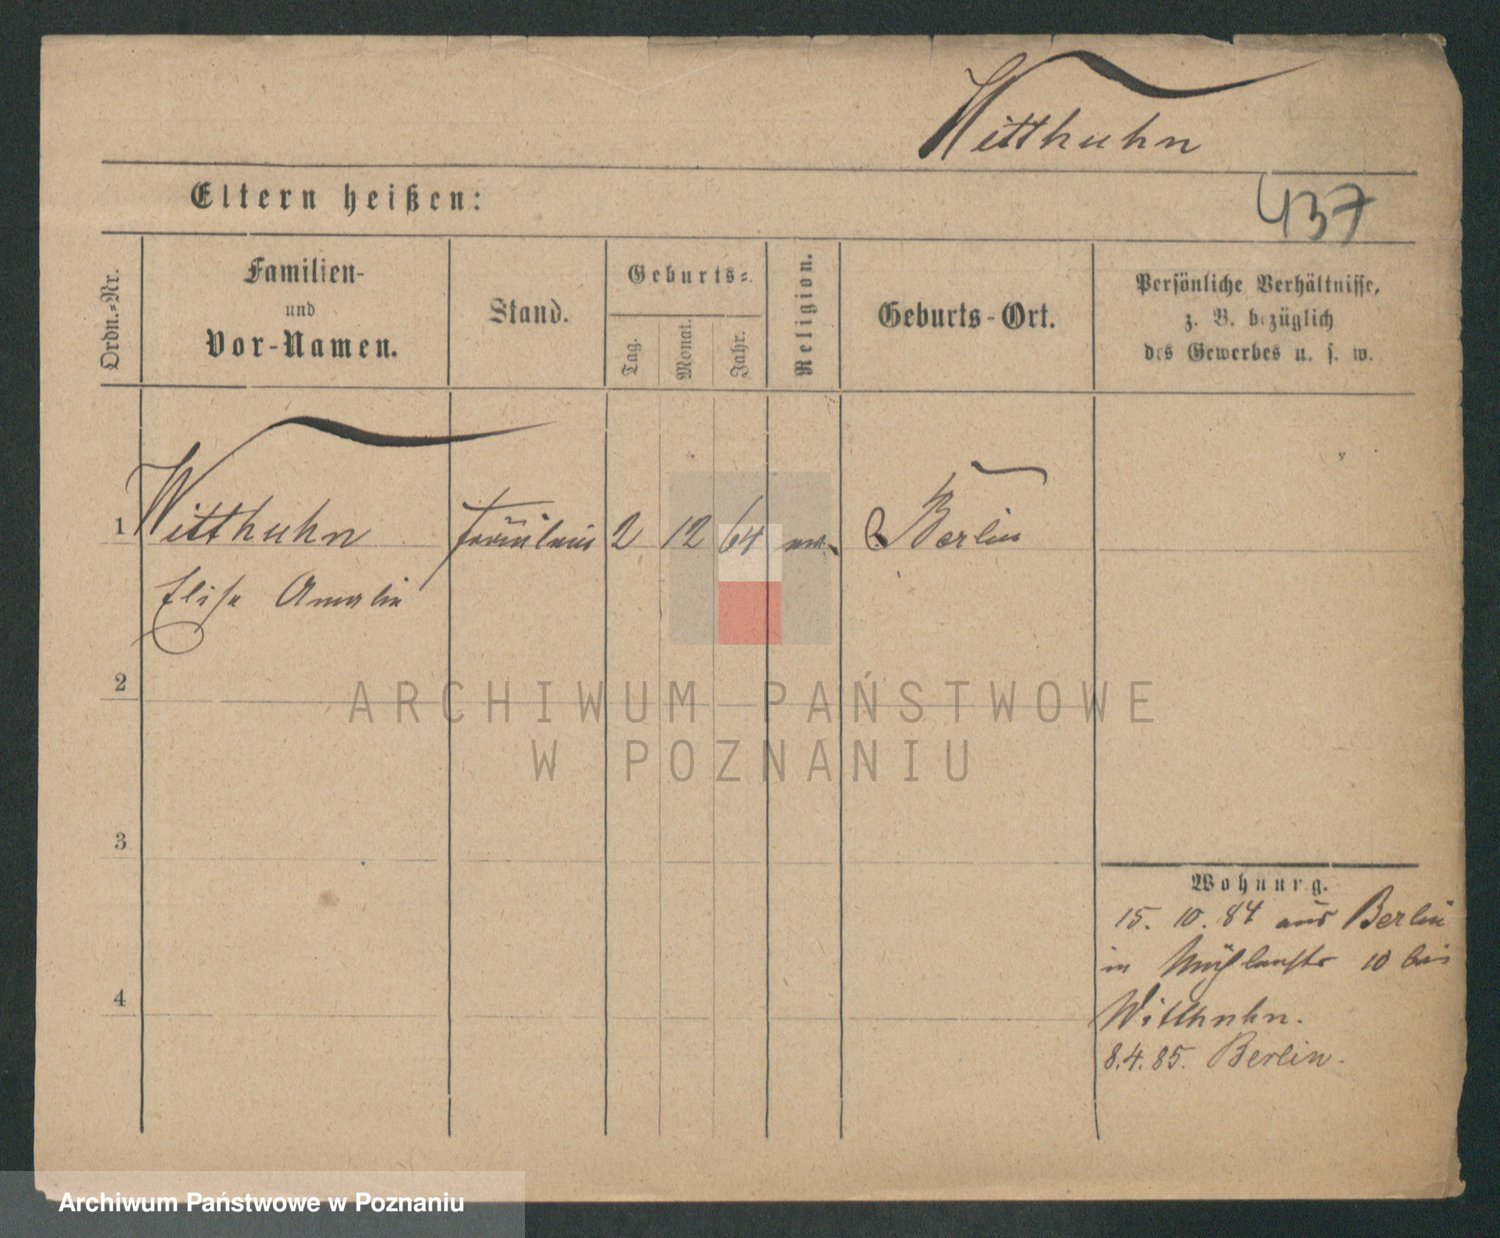 Witthuhn
Eltern heißen:
437
Ordn.-Nr.
Familien-
und
Vor-Namen.
Stand.
Geburts-
Tag.
Monat.
Jahr.
Religion.
Geburts-Ort.
Persönliche Verhältnisse,
z. B. bezüglich
des Gewerbes u. s. w.
1 Witthuhn Fräulein 2 12 64 ev. Berlin
Elise Amalie
2
ARCHIWUM PAŃSTWOWE
W POZNANIU
3
Wohnung.
15. 10. 84 aus Berlin
in Mühlenstr 10 bei
Witthuhn.
4
8.4.85. Berlin.
Archiwum Państwowe w Poznaniu